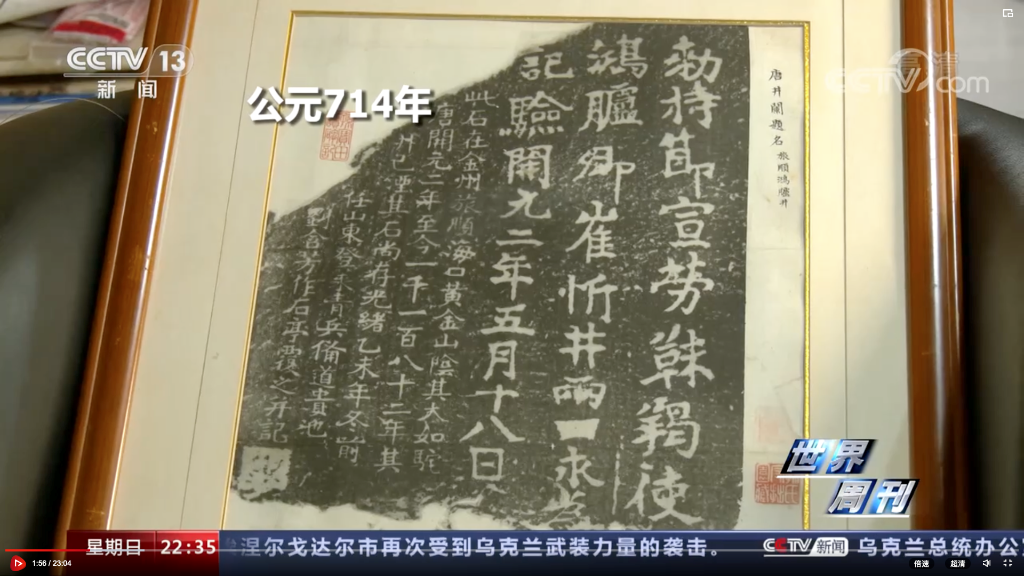 CCTV 13
新闻
公元714年
CCTV.com
高清
唐井闌題名
旅順鴻臚井
敕持節宣勞靺羯使
鴻臚卿崔忻井兩口永為
記驗開元二年五月十八日
此石在金州旅順海口黃金山陰其大如駝
唐開元二年至今一千一百八十二年其
井已湮其石尚存光緒乙未年冬前
任山東登萊青兵備道貴池
劉含芳作石亭覆之并記
世界
周刊
星期日 22:35
涅尔戈达尔市再次受到乌克兰武装力量的袭击。
CCTV 新闻
乌克兰总统办公
1:56 / 23:04
倍速
超清